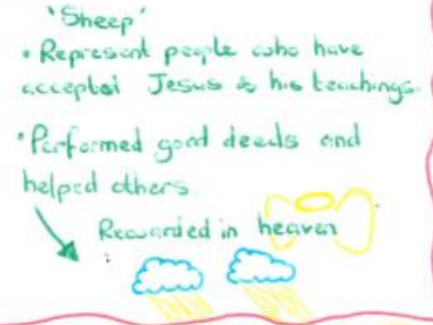 'Sheep'
• Represent people who have
accepted Jesus & his teachings.
• Performed good deeds and
helped others.
Rewarded in heaven